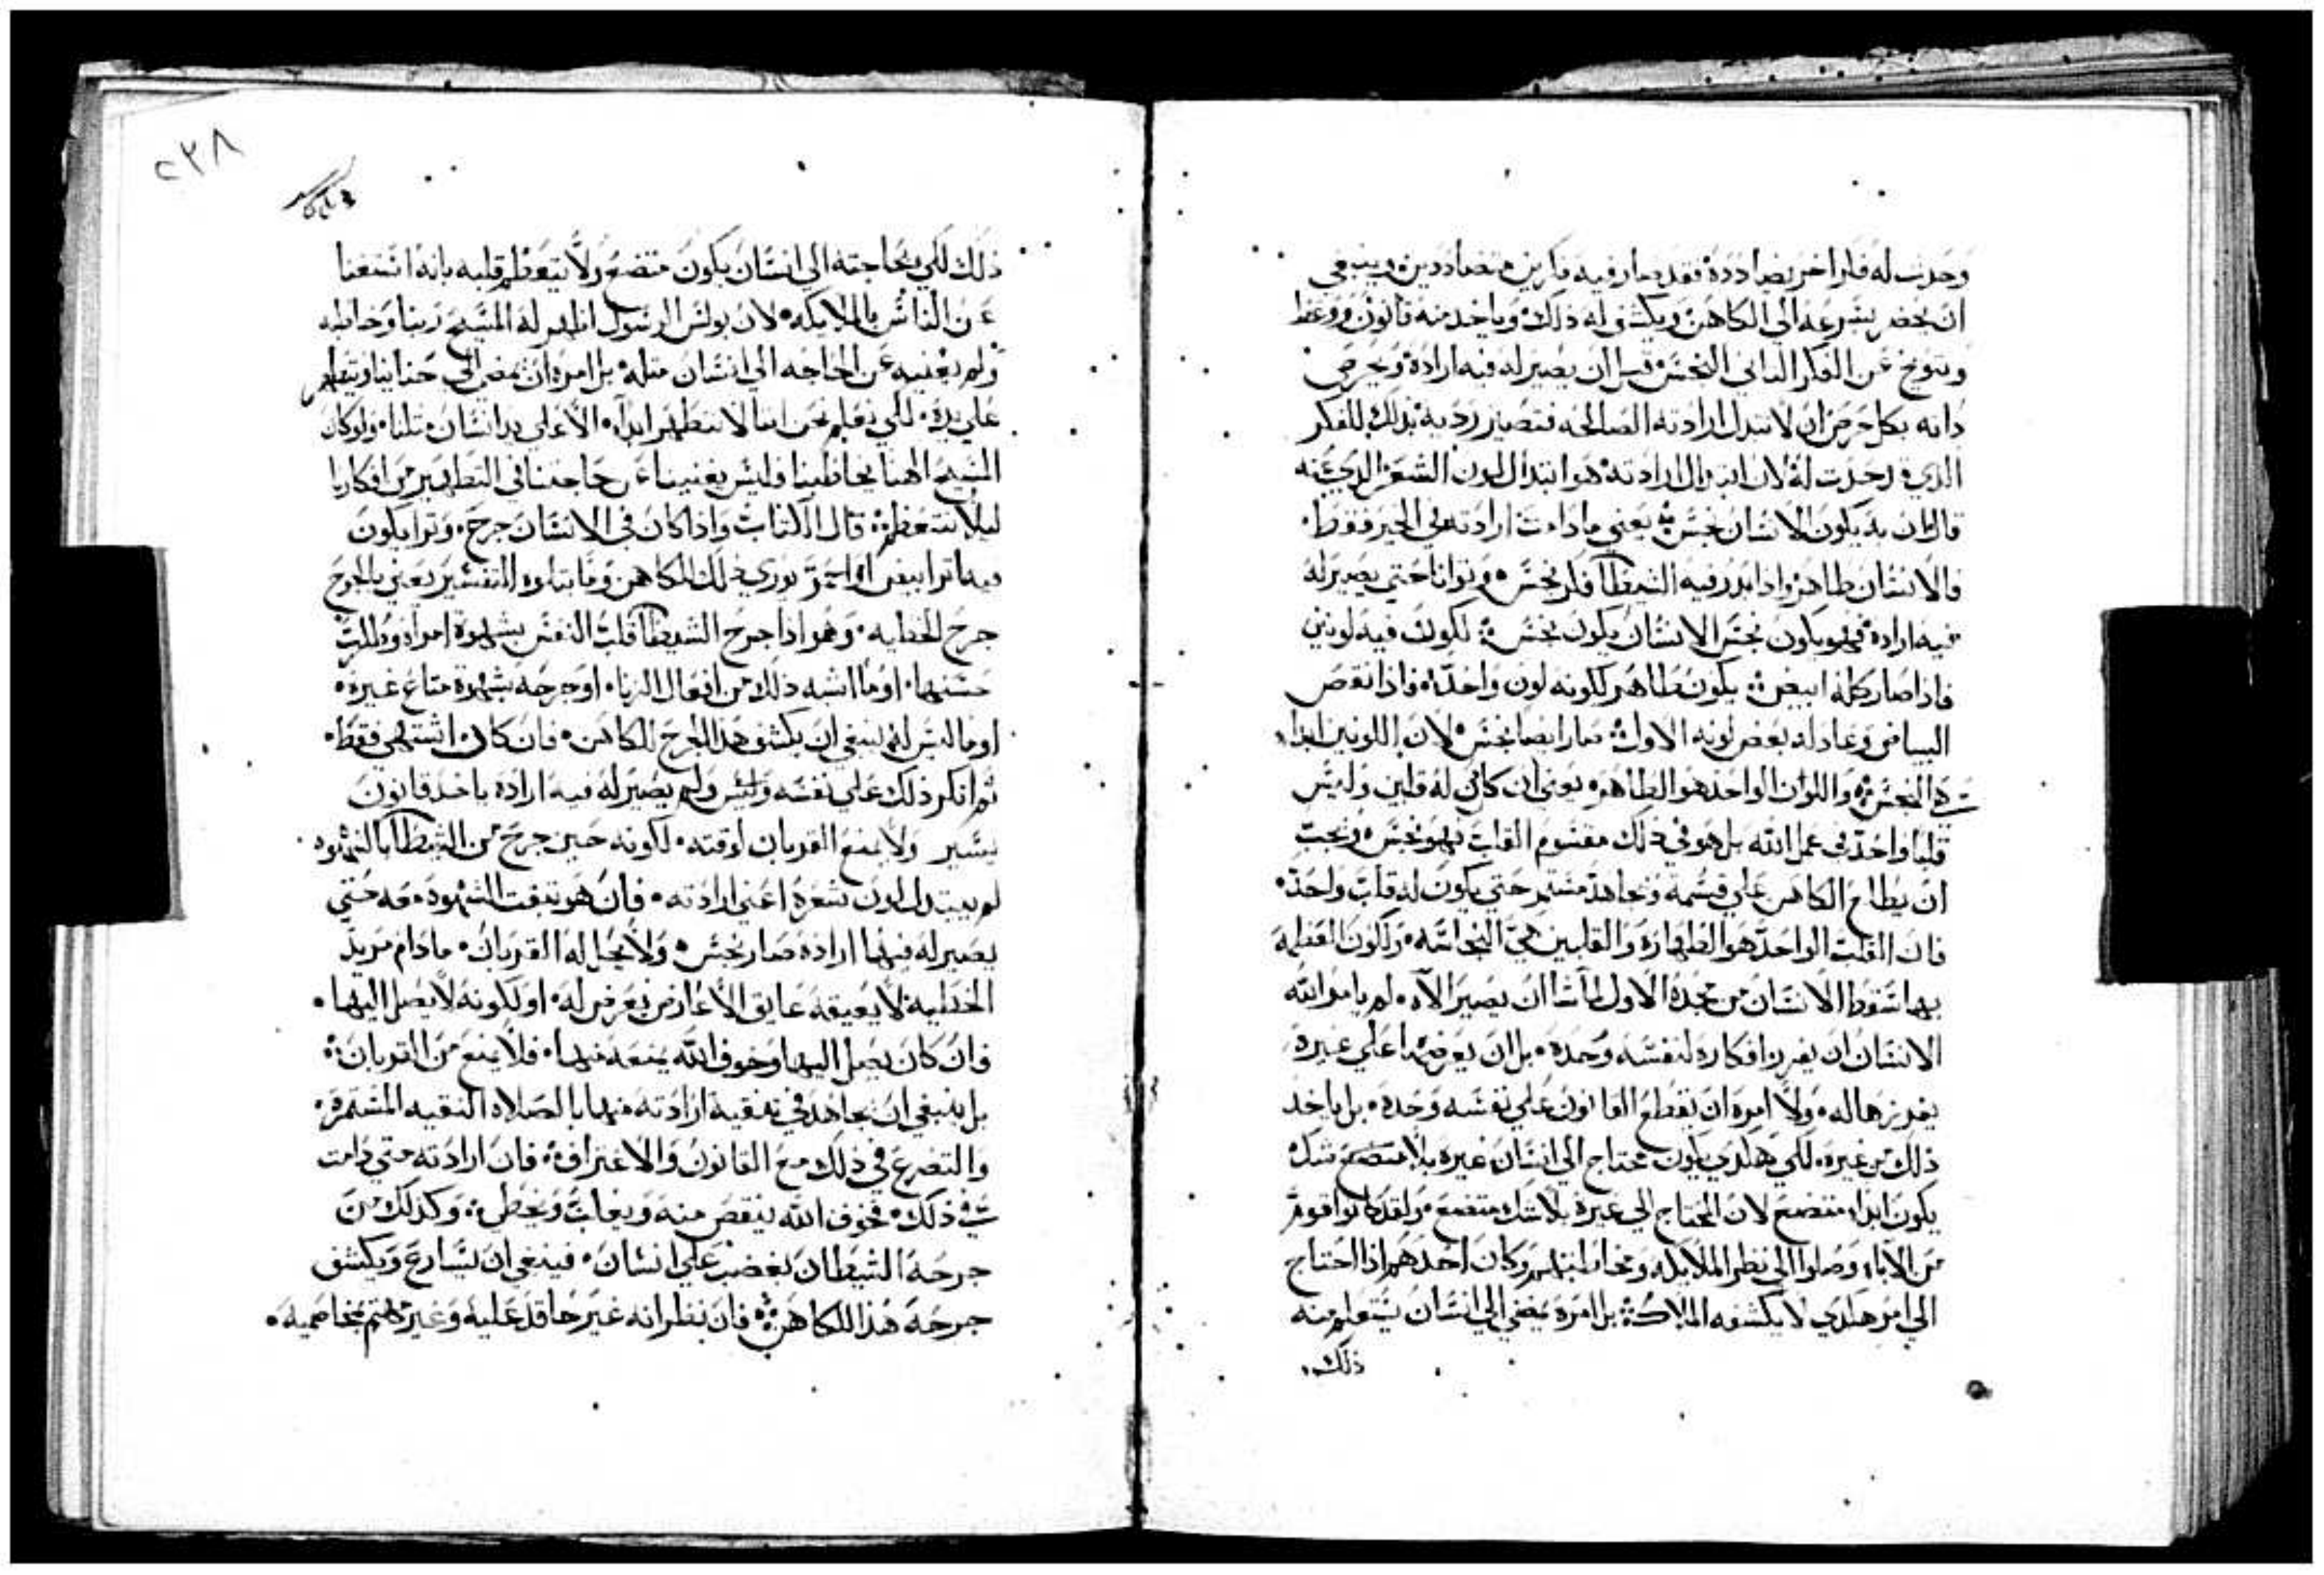 وحدث له فكر اخر يضاددة فقد صار فيه فكرين متضاددين وينبغي
ان يحضر بسرعه الي الكاهن ويكشف له ذلك وياخد منه قانون ووعظ
وتوبيخ عن الفكر التاني النجس قبل ان يصير له فيه ارادة ويحرص
داته بكل حرص ان لا تتبدل ارادته الصالحه فتصير رديه بدلك الفكر
الذي قد حدت له لان ابتدال ارادته هو ابتدال لون الشعر الدي عنه
قال ان به يكون الانسان نجس يعني مادامت ارادته في الخير فقط
فالانسان طاهر وادا بدر فيه الشيطان فكر نجس وتوانا حتي يصير له
فيه ارادة فهو يكون نجس الانسان يكون نجس لكون فيه لونين
فاذا صار كله ابيض يكون طاهر لكونه لون واحد فاذا نقص
البياض وعاد له بعض لونه الاول صار ايضا نجس لان اللونين ابدا
هي النجس واللون الواحد هو الطاهر يعني ان كان له قلبين وليس
قلبا واحد في عمل الله بل هو في ذلك مقسوم القلب فهو نجس ويجب
ان يطلع الكاهن علي قسمه ويجاهد مستمر حتي يكون له قلب واحد
فان القلب الواحد هو الطهارة والقلبين هي النجاسه ولكون العظمه
بها سقط الانسان من مجدة الاول لما شا ان يصير الاه لم يامر الله
الانسان ان يفرز افكاره لنفسه وحده بل ان يعرضها علي غيرة
يفرزها له ولا امره ان يقطع القانون علي نفسه وحده بل ياخد
ذلك من غيره لكي هكدي يكون محتاج الي انسان غيره بلا متضع شك
يكون ابدا متضع لان المحتاج الي غيرة بلا شك متضع ولقد كانوا قوم
من الاباء وصلوا الي نظر الملايكه ومخاطبتهم وكان احدهم اذا احتاج
الي امر هكدي لا يكشفه الملاك بل امره يمضي الي انسان يستعلم منه
ذلك
٢٣٨
ذلك لكي بحاجته الي انسان يكون متضع ولا يتعظم قلبه بانه استغنا
عن الناس بالملايكه لان بولس الرسول اظهر له المسيح ربنا وخاطبه
ولم يغنيه عن الحاجه الي انسان مثله بل امره ان يمضي الي حنانيا ويتطهر
علي يده لكي نعلم نحن اننا لا نتطهر ابدا الا علي يد انسان مثلنا ولو كان
المسيح الاهنا يخاطبنا فليس يغنينا عن حاجتنا في التطهير من افكارنا
ليلا نتعظم قال الكتاب واذا كان في الانسان جرح وترا يكون
فيه اتر ابيض او احمر يوري ذلك للكاهن وما يتلوه التفسير يعني بالجرح
جرح الخطيه وهو اذا جرح الشيطان قلب النفس بشهوة امراه وطلبت
حسنها او ما اشبه ذلك من افعال الزنا او جرحه بشهوة متاع غيرة
او ما ليس له ينبغي ان يكشف هدا الجرح للكاهن فان كان اشتهي فقط
ثم انكر ذلك علي نفسه وليس ولم يصير له فيه ارادة ياخد قانون
يسير ولا يمنع القربان لوقته لكونه حين جرح من الشيطان بالشهوه
لم يبتدل لون شعرة اعني ارادته فان هو تبقت الشهوه معه حتي
يصير له فيها ارادة صار نجس ولا يحل له القربان مادام مريد
الخطيه لا يعيقه عايق الا عارض يعرض له او لكونه لا يصل اليها
فان كان يصل اليها وخوف الله يمنعه منها فلا يمنع من القربان
بل ينبغي ان يجاهد في تنقية ارادته منها بالصلاه النقيه المستمرة
والتضرع في ذلك مع القانون والاعتراف فان ارادته متي دامت
في ذلك فخوف الله ينقص منه ويغلب ويخطي وكدلك من
جرحه الشيطان بغضب علي انسان فينبغي ان يسارع ويكشف
جرحه هذا للكاهن فان نظر انه غير حاقد عليه وغير مهتم بمخاصميه